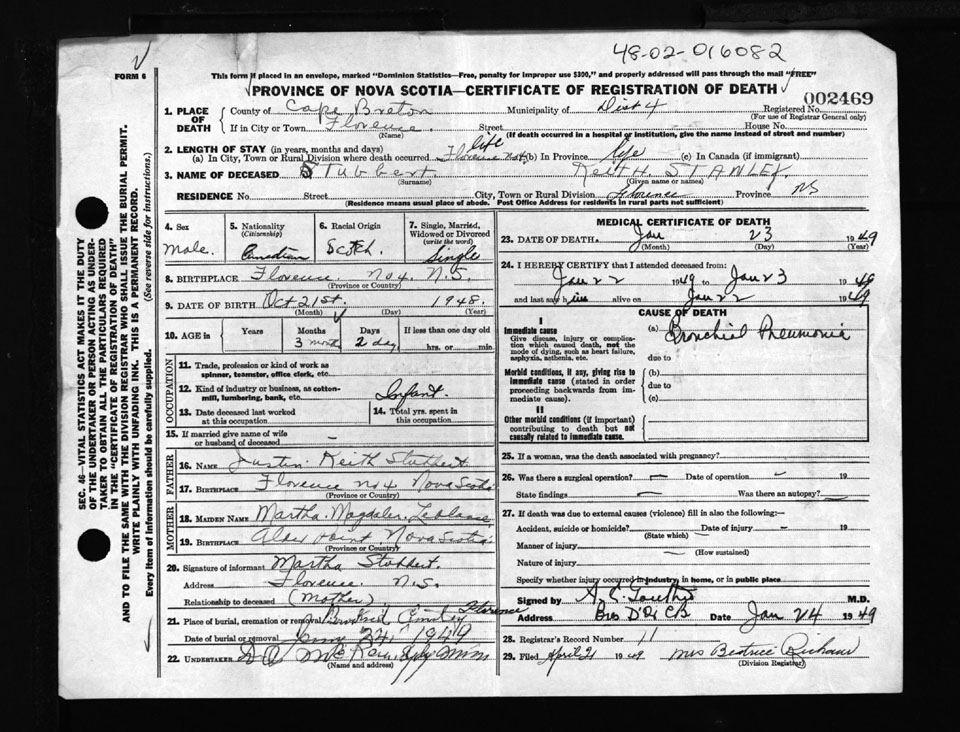 48-02-016082
FORM 6
This form if placed in an envelope, marked "Dominion Statistics—Free, penalty for improper use $300," and properly addressed will pass through the mail "FREE"
PROVINCE OF NOVA SCOTIA—CERTIFICATE OF REGISTRATION OF DEATH
002469
1. PLACE OF DEATH County of Cape Breton Municipality of Dist 4 Registered No.
(For use of Registrar General only)
If in City or Town Florence. Street House No.
(Name) (If death occurred in a hospital or institution, give the name instead of street and number)
2. LENGTH OF STAY (in years, months and days)
(a) In City, Town or Rural Division where death occurred Florence No 4 life (b) In Province life (c) In Canada (if immigrant)
3. NAME OF DECEASED Stubbert. Keith H. STANLEY.
(Surname) (Given name or names)
RESIDENCE No. Street City, Town or Rural Division Florence Province NS
(Residence means usual place of abode. Post Office Address for residents in rural parts not sufficient)
SEC. 46—VITAL STATISTICS ACT MAKES IT THE DUTY
OF THE UNDERTAKER OR PERSON ACTING AS UNDER-
TAKER TO OBTAIN ALL THE PARTICULARS REQUIRED
IN THE "CERTIFICATE OF REGISTRATION OF DEATH"
AND TO FILE THE SAME WITH THE DIVISION REGISTRAR WHO SHALL ISSUE THE BURIAL PERMIT.
WRITE PLAINLY WITH UNFADING INK. THIS IS A PERMANENT RECORD.
Every item of Information should be carefully supplied. (See reverse side for instructions.)
4. Sex
Male.
5. Nationality
(Citizenship)
Canadian
6. Racial Origin
Scotch.
7. Single, Married,
Widowed or Divorced
(write the word)
Single
8. BIRTHPLACE Florence. No 4. N.S.
(Province or Country)
9. DATE OF BIRTH Oct 21st. 1948.
(Month) (Day) (Year)
10. AGE in Years Months Days If less than one day old
3 months 2 day hrs. or min.
OCCUPATION
11. Trade, profession or kind of work as
spinner, teamster, office clerk, etc.
12. Kind of industry or business, as cotton-
mill, lumbering, bank, etc. Infant.
13. Date deceased last worked
at this occupation
14. Total yrs. spent in
this occupation
15. If married give name of wife
or husband of deceased —
FATHER
16. NAME Justin Keith Stubbert
17. BIRTHPLACE Florence No 4 Nova Scotia
(Province or Country)
MOTHER
18. MAIDEN NAME Martha. Magdalen LeBlanc
19. BIRTHPLACE Alder Point Nova Scotia
(Province or Country)
20. Signature of informant Martha Stubbert.
Address Florence. N.S.
Relationship to deceased (Mother)
21. Place of burial, cremation or removal Florence
Date of burial or removal 24 1949
22. UNDERTAKER
(Name and address)
MEDICAL CERTIFICATE OF DEATH
23. DATE OF DEATH. Jan 23 1949
(Month) (Day) (Year)
24. I HEREBY CERTIFY that I attended deceased from:
Jan 22 1949 to Jan 23 1949
and last saw him alive on Jan 22 1949
CAUSE OF DEATH
I
Immediate cause
Give disease, injury or complica-
tion which caused death, not the
mode of dying, such as heart failure,
asphyxia, asthenia, etc.
(a) Bronchial Pneumonia
due to
Morbid conditions, if any, giving rise to
immediate cause (stated in order
proceeding backwards from im-
mediate cause).
(b)
due to
(c)
II
Other morbid conditions (if important)
contributing to death but not
causally related to immediate cause.
25. If a woman, was the death associated with pregnancy?
26. Was there a surgical operation? — Date of operation - 19
State findings — Was there an autopsy? —
27. If death was due to external causes (violence) fill in also the following:—
Accident, suicide or homicide? Date of injury - 19
(State which)
Manner of injury
(How sustained)
Nature of injury
Specify whether injury occurred in industry, in home, or in public place
Signed by M.D.
Address Date Jan 24 1949
28. Registrar's Record Number 11
29. Filed April 21 1949 Mrs Beatrice
(Division Registrar)